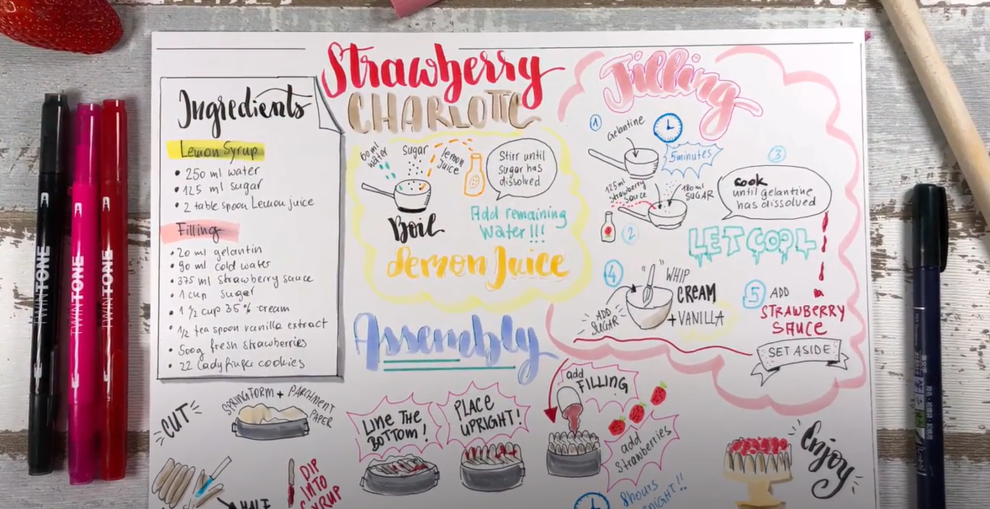 Strawberry
CHARLOTTE
Ingredients
Lemon Syrup
• 250 ml water
• 125 ml sugar
• 2 table spoon Lemon juice
Filling
• 20 ml gelantin
• 90 ml cold water
• 375 ml strawberry sauce
• 1 cup sugar
• 1 1/2 cup 35% cream
• 1/2 tea spoon vanilla extract
• 500g fresh strawberries
• 22 Ladyfinger cookies
60 ml
water
Sugar
lemon
juice
Stirr until
Sugar has
dissolved
Boil
Add remaining
Water!!!
Lemon Juice
Filling
1
Gelantine
5 minutes
125 ml
Strawberry
Sauce
180 ml
SUGAR
2
3
cook
until gelantine
has dissolved
LET COOL
4
WHIP
CREAM
+ VANILLA
ADD
SUGAR
5 ADD
STRAWBERRY
SAUCE
SET ASIDE
Assembly
CUT
SPRINGFORM + PARCHMENT
PAPER
HALF
DIP
INTO
SYRUP
LINE THE
BOTTOM!
PLACE
UPRIGHT!
add
FILLING
add
Strawberries
8 hours
Enjoy
TWINTONE
TWINTONE
TWINTONE